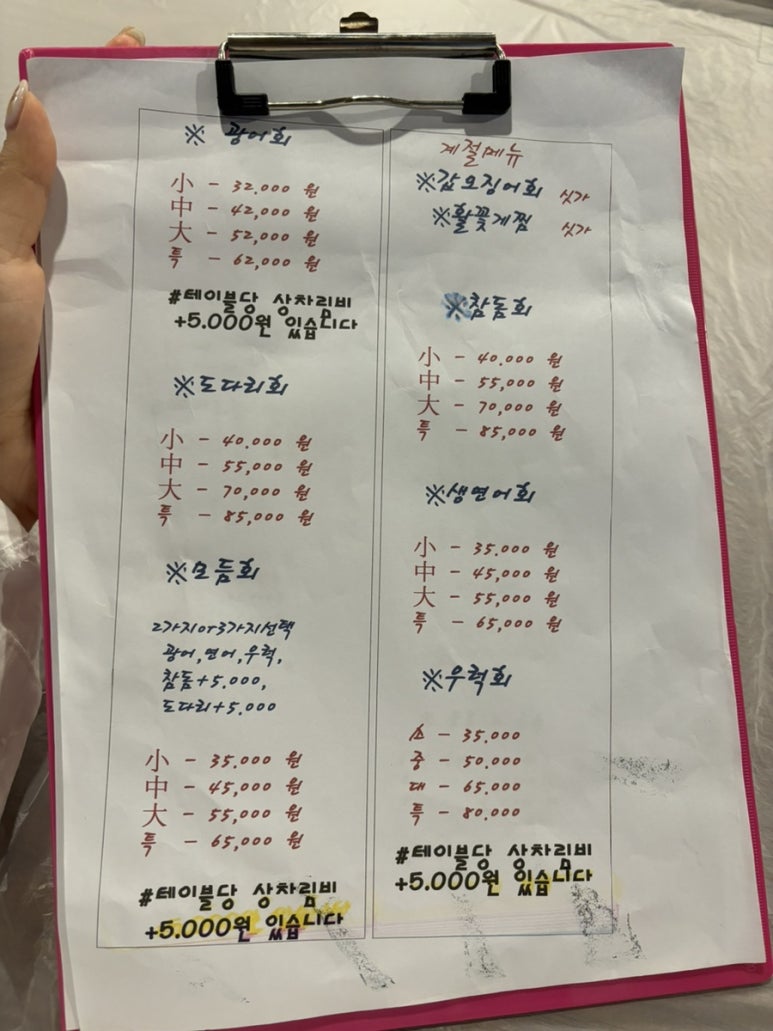 ※ 광어회
小 - 32.000 원
中 - 42,000 원
大 - 52,000 원
특 - 62,000 원
#테이블당 상차림비
+5.000원 있습니다
※도다리회
小 - 40.000 원
中 - 55,000 원
大 - 70,000 원
특 - 85,000 원
※모듬회
2가지or3가지선택
광어,연어,우럭,
참돔+5.000,
도다리+5.000
小 - 35.000 원
中 - 45,000 원
大 - 55,000 원
특 - 65,000 원
#테이블당 상차림비
+5.000원 있습니다
계절메뉴
※갑오징어회 싯가
※활꽃게찜 싯가
※참돔회
小 - 40.000 원
中 - 55,000 원
大 - 70,000 원
특 - 85,000 원
※생연어회
小 - 35.000 원
中 - 45,000 원
大 - 55,000 원
특 - 65,000 원
※우럭회
소 - 35.000
중 - 50.000
대 - 65.000
특 - 80.000
#테이블당 상차림비
+5.000원 있습니다